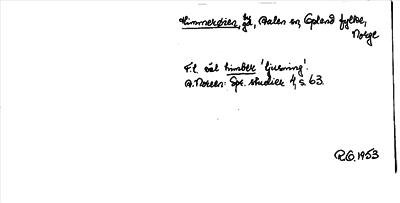 Himmerøien, gd, Dalen sn, Opland fylke,
Norge
F.l. väl himber 'ljusning'.
A. Noreen: Spr. studier 4, s. 63.
R.O. 1953